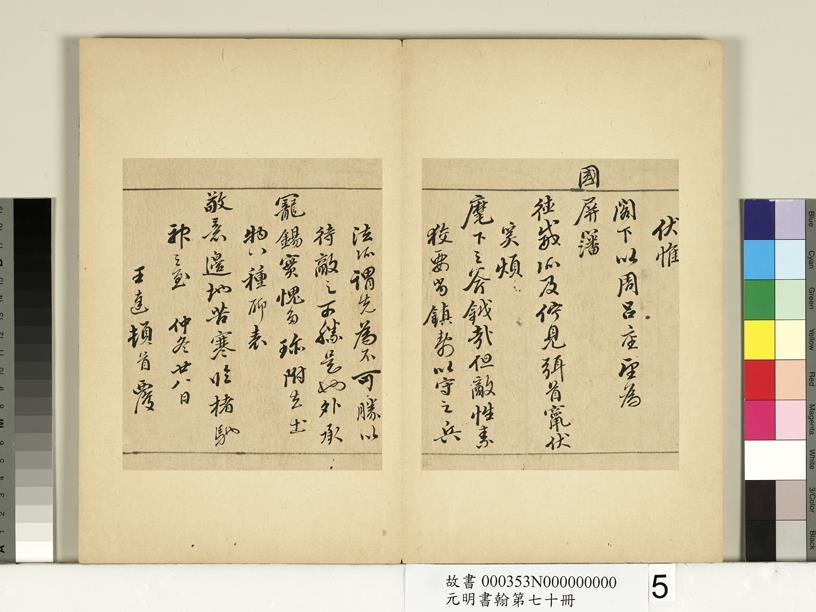 伏惟
閣下以周召重望為
國屏藩
德威所及佇見弭首竄伏
奚煩
麾下之斧鉞哉但敵性素
狡要當鎮静以守之兵
法所謂先為不可勝以
待敵之可勝是也外承
寵錫實愧多珍附去土
物八種聊表
敬意邊地苦寒臨楮馳
神之至 仲冬廿八日
王 頓首覆
故書 000353N000000000
元明書翰第七十冊
5
Blue
Cyan
Green
Yellow
Red
Magenta
White
3/Color
Black